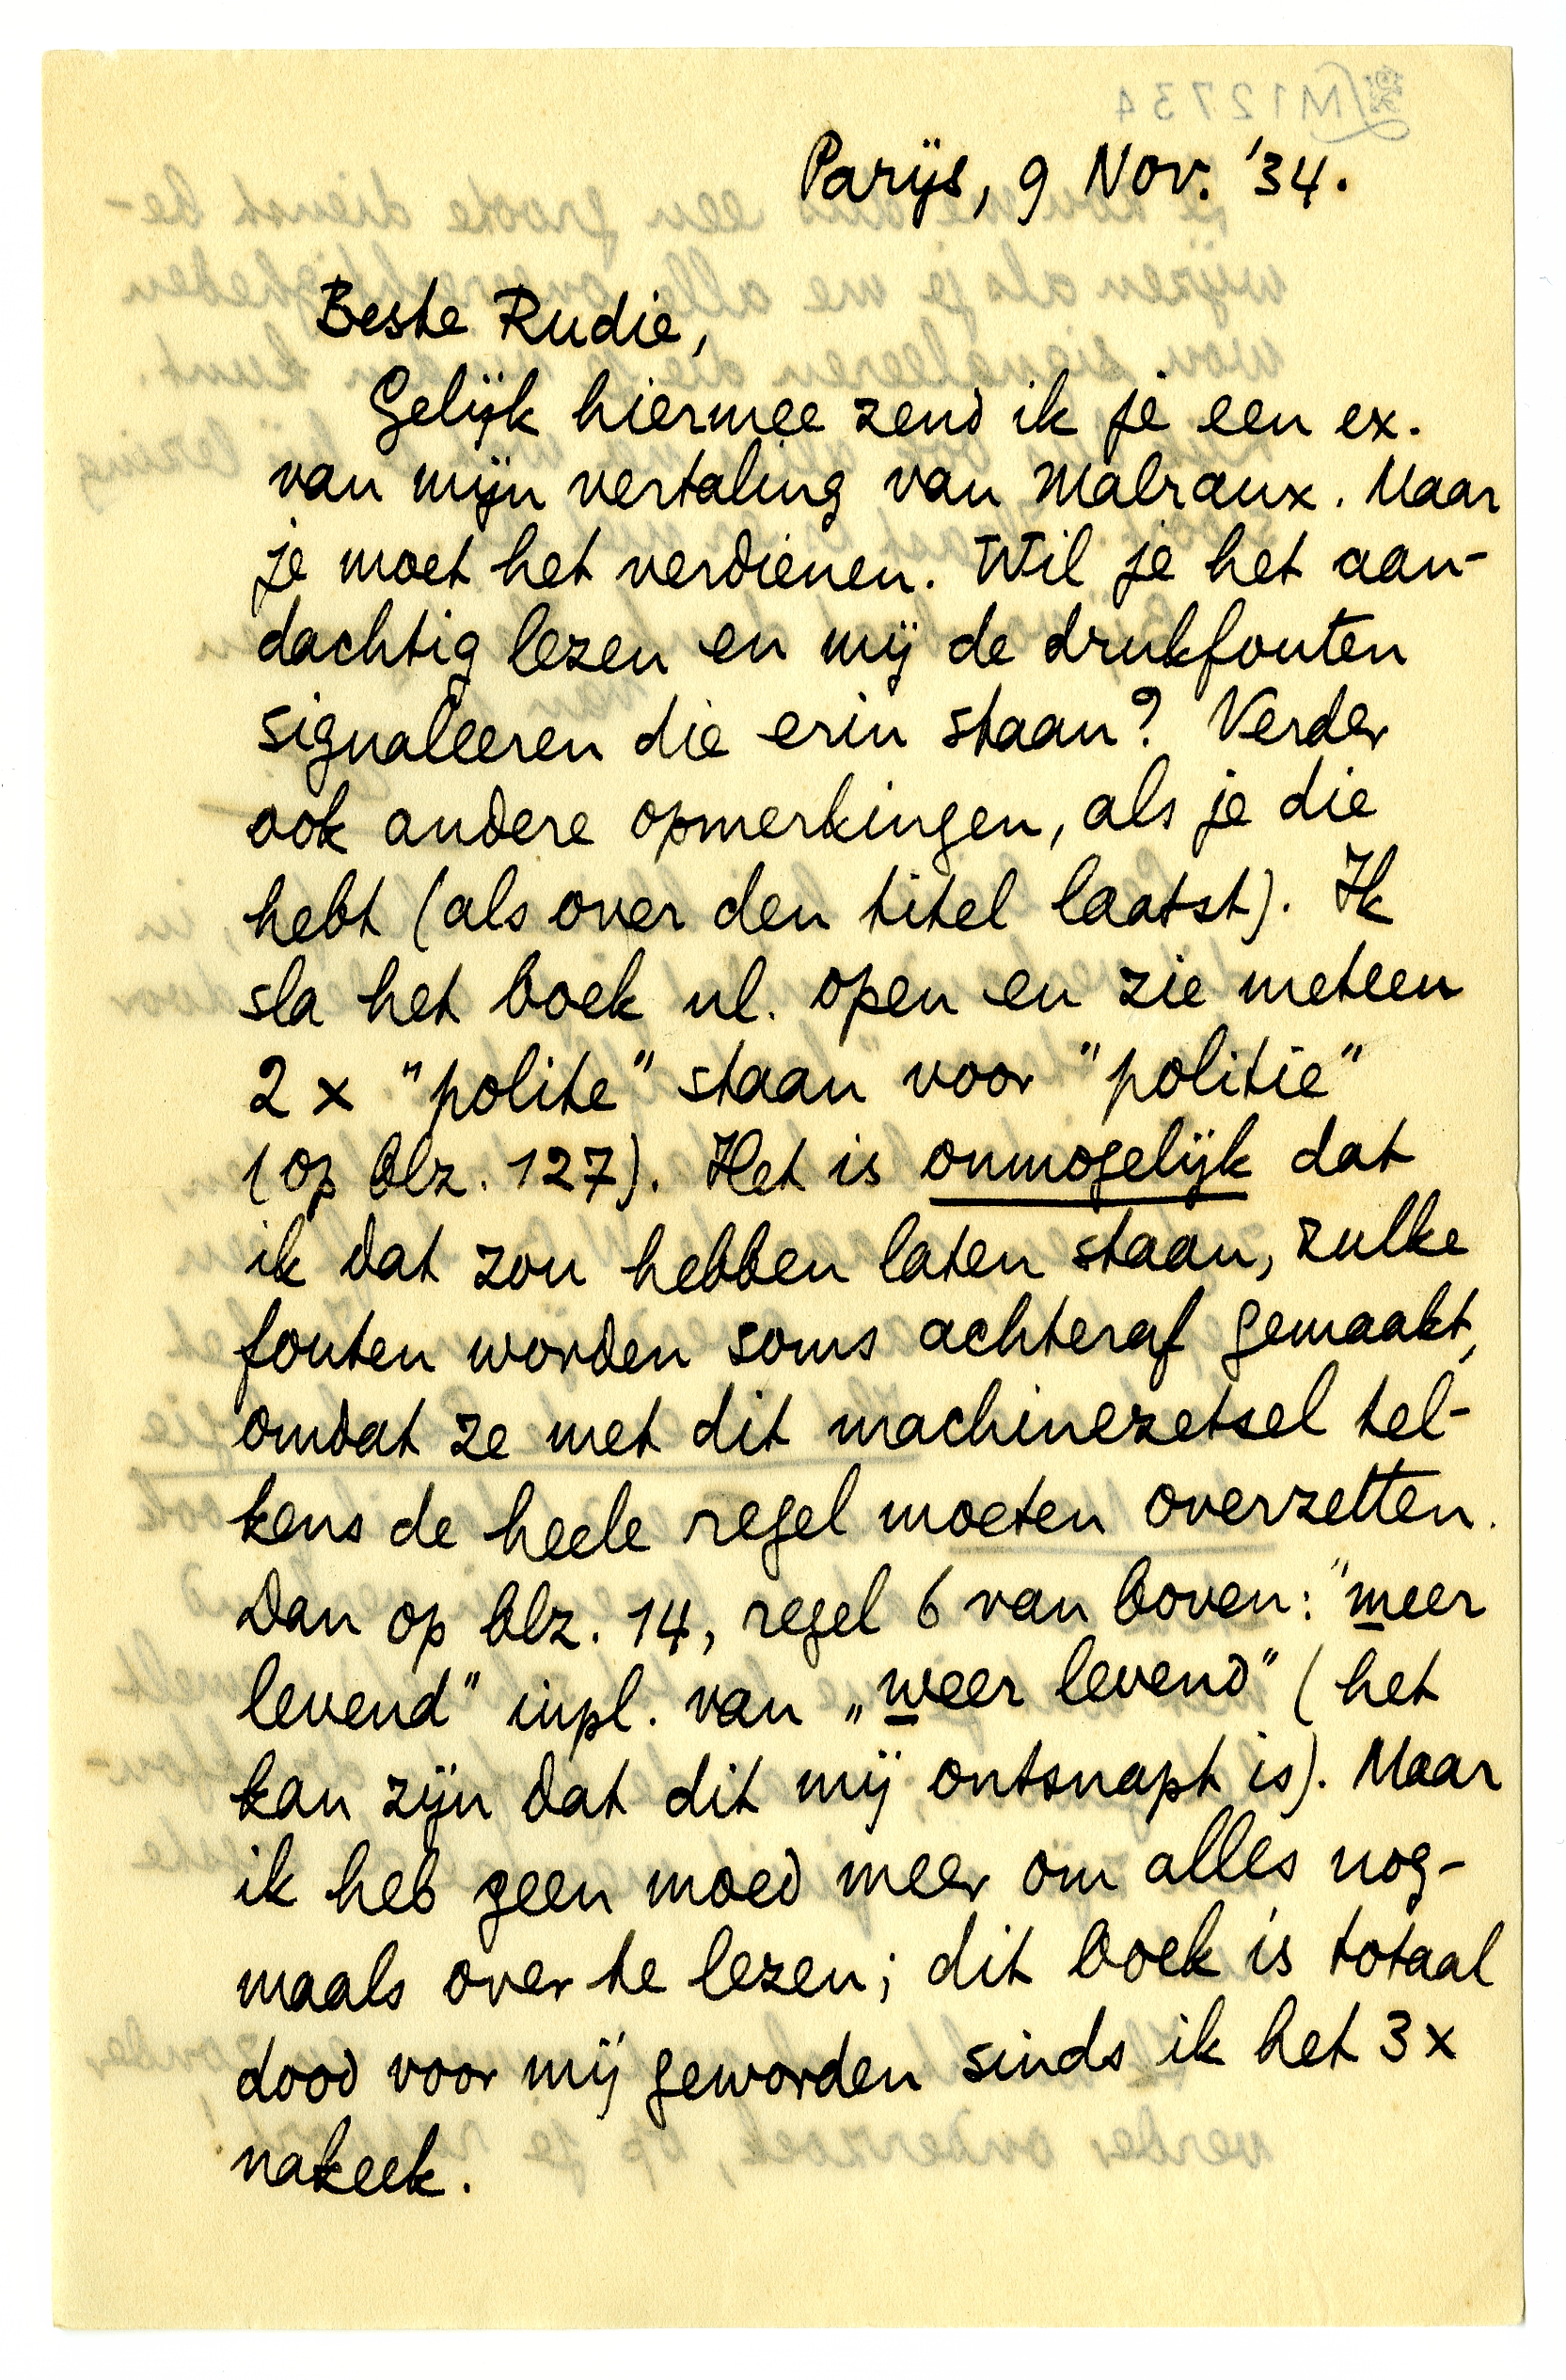 Parijs, 9 Nov. '34.
Beste Rudie,
Gelijk hiermee zend ik je een ex.
van mijn vertaling van Malraux. Maar
je moet het verdienen. Wil je het aan-
dachtig lezen en mij de drukfouten
signaleeren die erin staan? Verder
ook andere opmerkingen, als je die
hebt (als over den titel laatst). Ik
sla het boek nl. open en zie meteen
2 x "polite" staan voor "politie"
(op blz. 127). Het is onmogelijk dat
ik dat zou hebben laten staan, zulke
fouten worden soms achteraf gemaakt,
omdat ze met dit machinezetsel tel-
kens de heele regel moeten overzetten.
Dan op blz. 14, regel 6 van boven: "meer
levend" inpl. van „weer levend" (het
kan zijn dat dit mij ontsnapt is). Maar
ik heb geen moed meer om alles nog-
maals over te lezen; dit boek is totaal
dood voor mij geworden sinds ik het 3 x
nakeek.